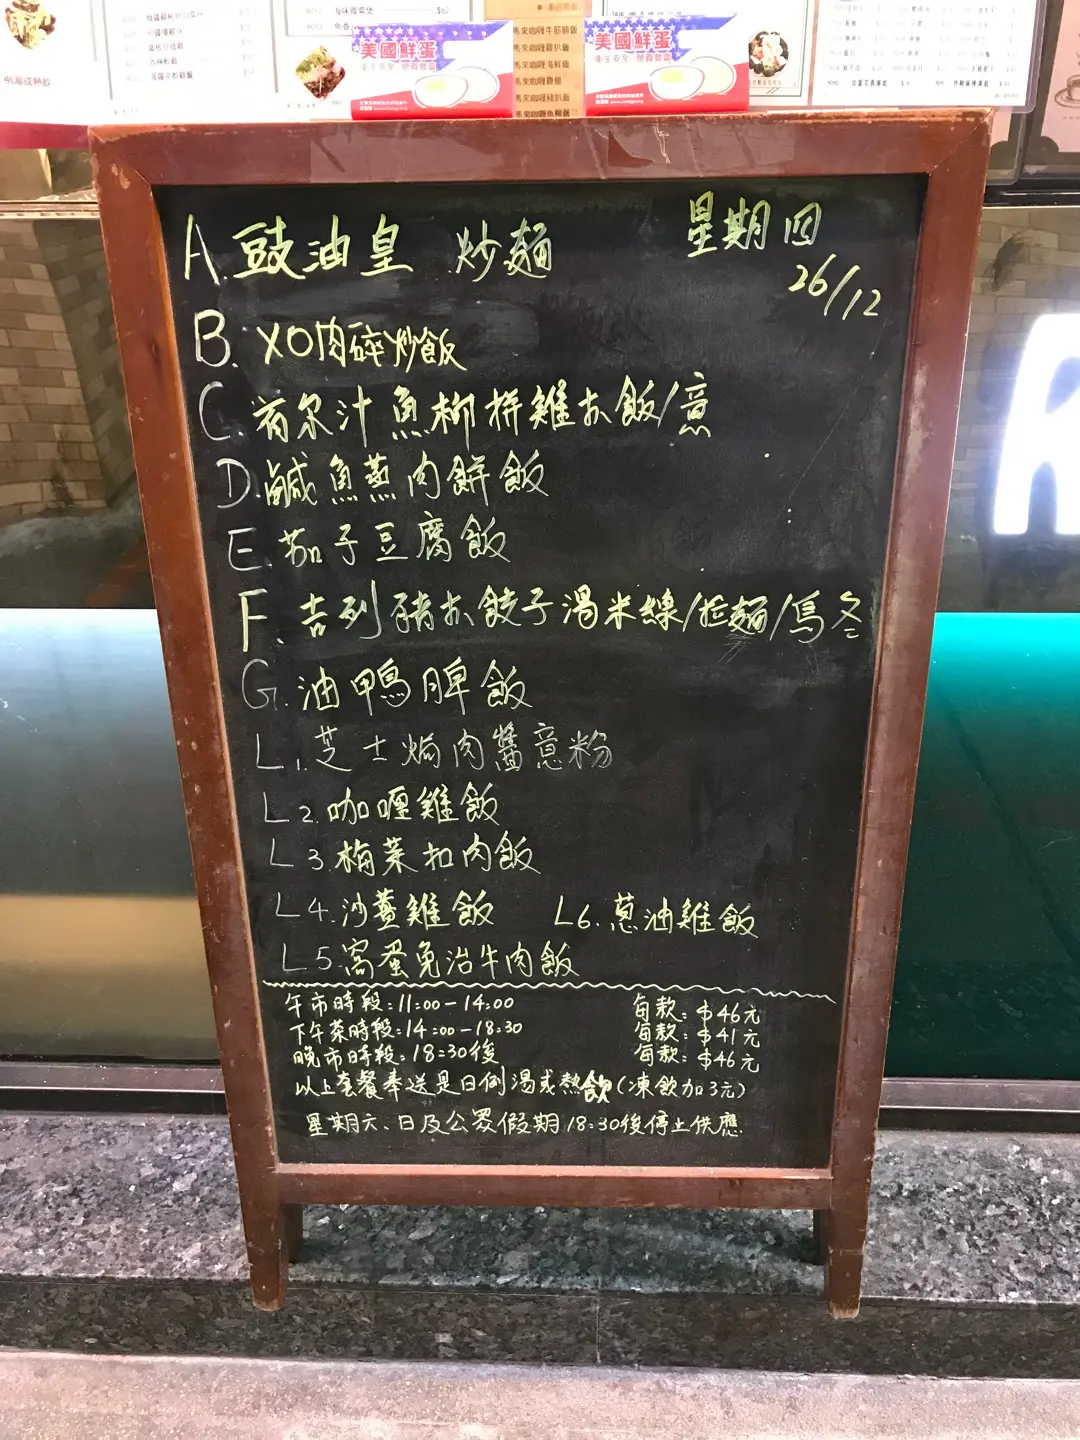 美國鮮蛋
美國鮮蛋
馬來咖喱雞飯
馬來咖喱海鮮飯
例湯或熱飲
A. 豉油皇 炒麵
星期四
26/12
B. XO肉碎炒飯
C. 荷尔汁魚柳拼雞扒飯/意
D. 鹹魚蒸肉餅飯
E. 茄子豆腐飯
F. 吉列豬扒餃子湯米線/拉麵/烏冬
G. 油鴨脾飯
L1. 芝士焗肉醬意粉
L2. 咖喱雞飯
L3. 梅菜扣肉飯
L4. 沙薑雞飯 L6. 蔥油雞飯
L5. 窩蛋免治牛肉飯
午市時段:11:00-14:00 每款:$46元
下午茶時段:14:00-18:30 每款:$41元
晚市時段:18:30後 每款:$46元
以上套餐奉送是日例湯或熱飲(凍飲加3元)
星期六、日及公眾假期18:30後停止供應